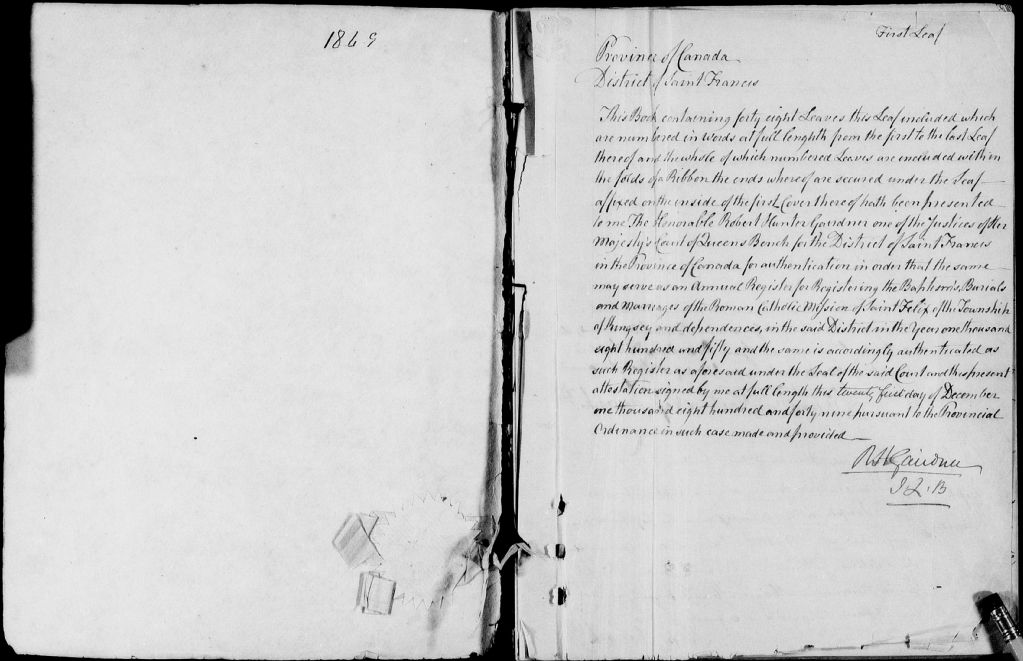 1869
First Leaf
Province of Canada
District of Saint Francis
This Book containing forty eight Leaves this Leaf included which
are numbered in words at full lenghth from the first to the last Leaf
thereof and the whole of which numbered Leaves are included within
the folds of a Ribbon the ends whereof are secured under the Seal
affixed on the inside of the first Cover thereof hath been presented
to me The Honorable Robert Hunter Gairdner one of the Justices of Her
Majesty's Court of Queens Bench for the District of Saint Francis
in the Province of Canada for authentication in order that the same
may serve as an Annual Register for Registering the Baptesms, Burials
and Marriages of the Roman Catholic Mission of Saint Felix of the Township
of Kingsey and dependences, in the said District in the Year one thousand
eight hundred and fifty and the same is accordingly authenticated as
such Register as aforesaid under the Seal of the said Court and this present
attestation signed by me at full length this twenty first day of December
one thousand eight hundred and forty nine pursuant to the Provincial
Ordinance in such case made and provided
R H Gairdner